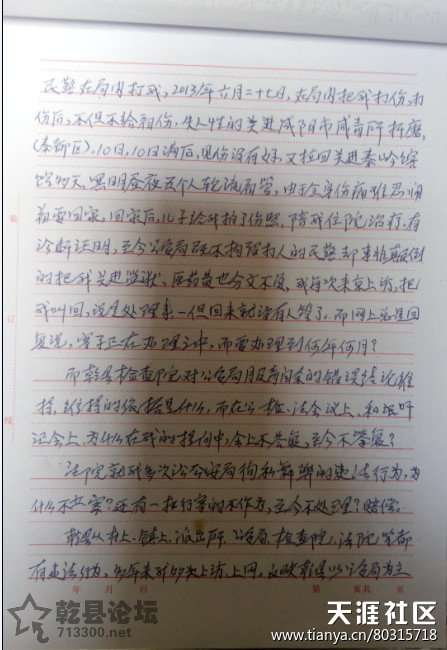 民警在局内打我，2013年六月二十七日，在局内把我打伤，打
伤后，不但不给治伤，失人性的关进咸阳市咸青阵折磨，
(秦新区)，10日，10日满后，见伤没有好，又拉回关进秦岭宾
馆多天，黑明昼夜五个人轮流看管，由于全身伤痛难忍
着要回家，回家后，儿子给我拍了伤照，陪我住院治疗，有
诊断证明，至今公安局既不拘留打人的民警却来非颠倒
的把我关进监狱，医药费也分文不负，我每次来京上访，把
我叫回，说是处理来一但回来就没有人管了，而网上总是回
复说，案子正在办理之中，而要办理到何年何月？
而乾县检查院对公安局股看问案的错误结论维
持，维持的依据是什么，而在公、检、法会议上，和听
证会上，为什么在我的提问中，会上不答复，至今不答复？
法院就我多次诉公安局徇私舞弊的违法行为，为
什么不立案？还有一批行案的不作为，至今不处理？赔偿。
乾县从村上、镇上、派出所、公安局、检查院、法院等部
有违法行为，多年来我多次上访，上网，反映乾县以公安局为主
装
订
线
年 月 日
第 页共 页
乾县论坛
713300.net
天涯社区
www.tianya.cn/80315718